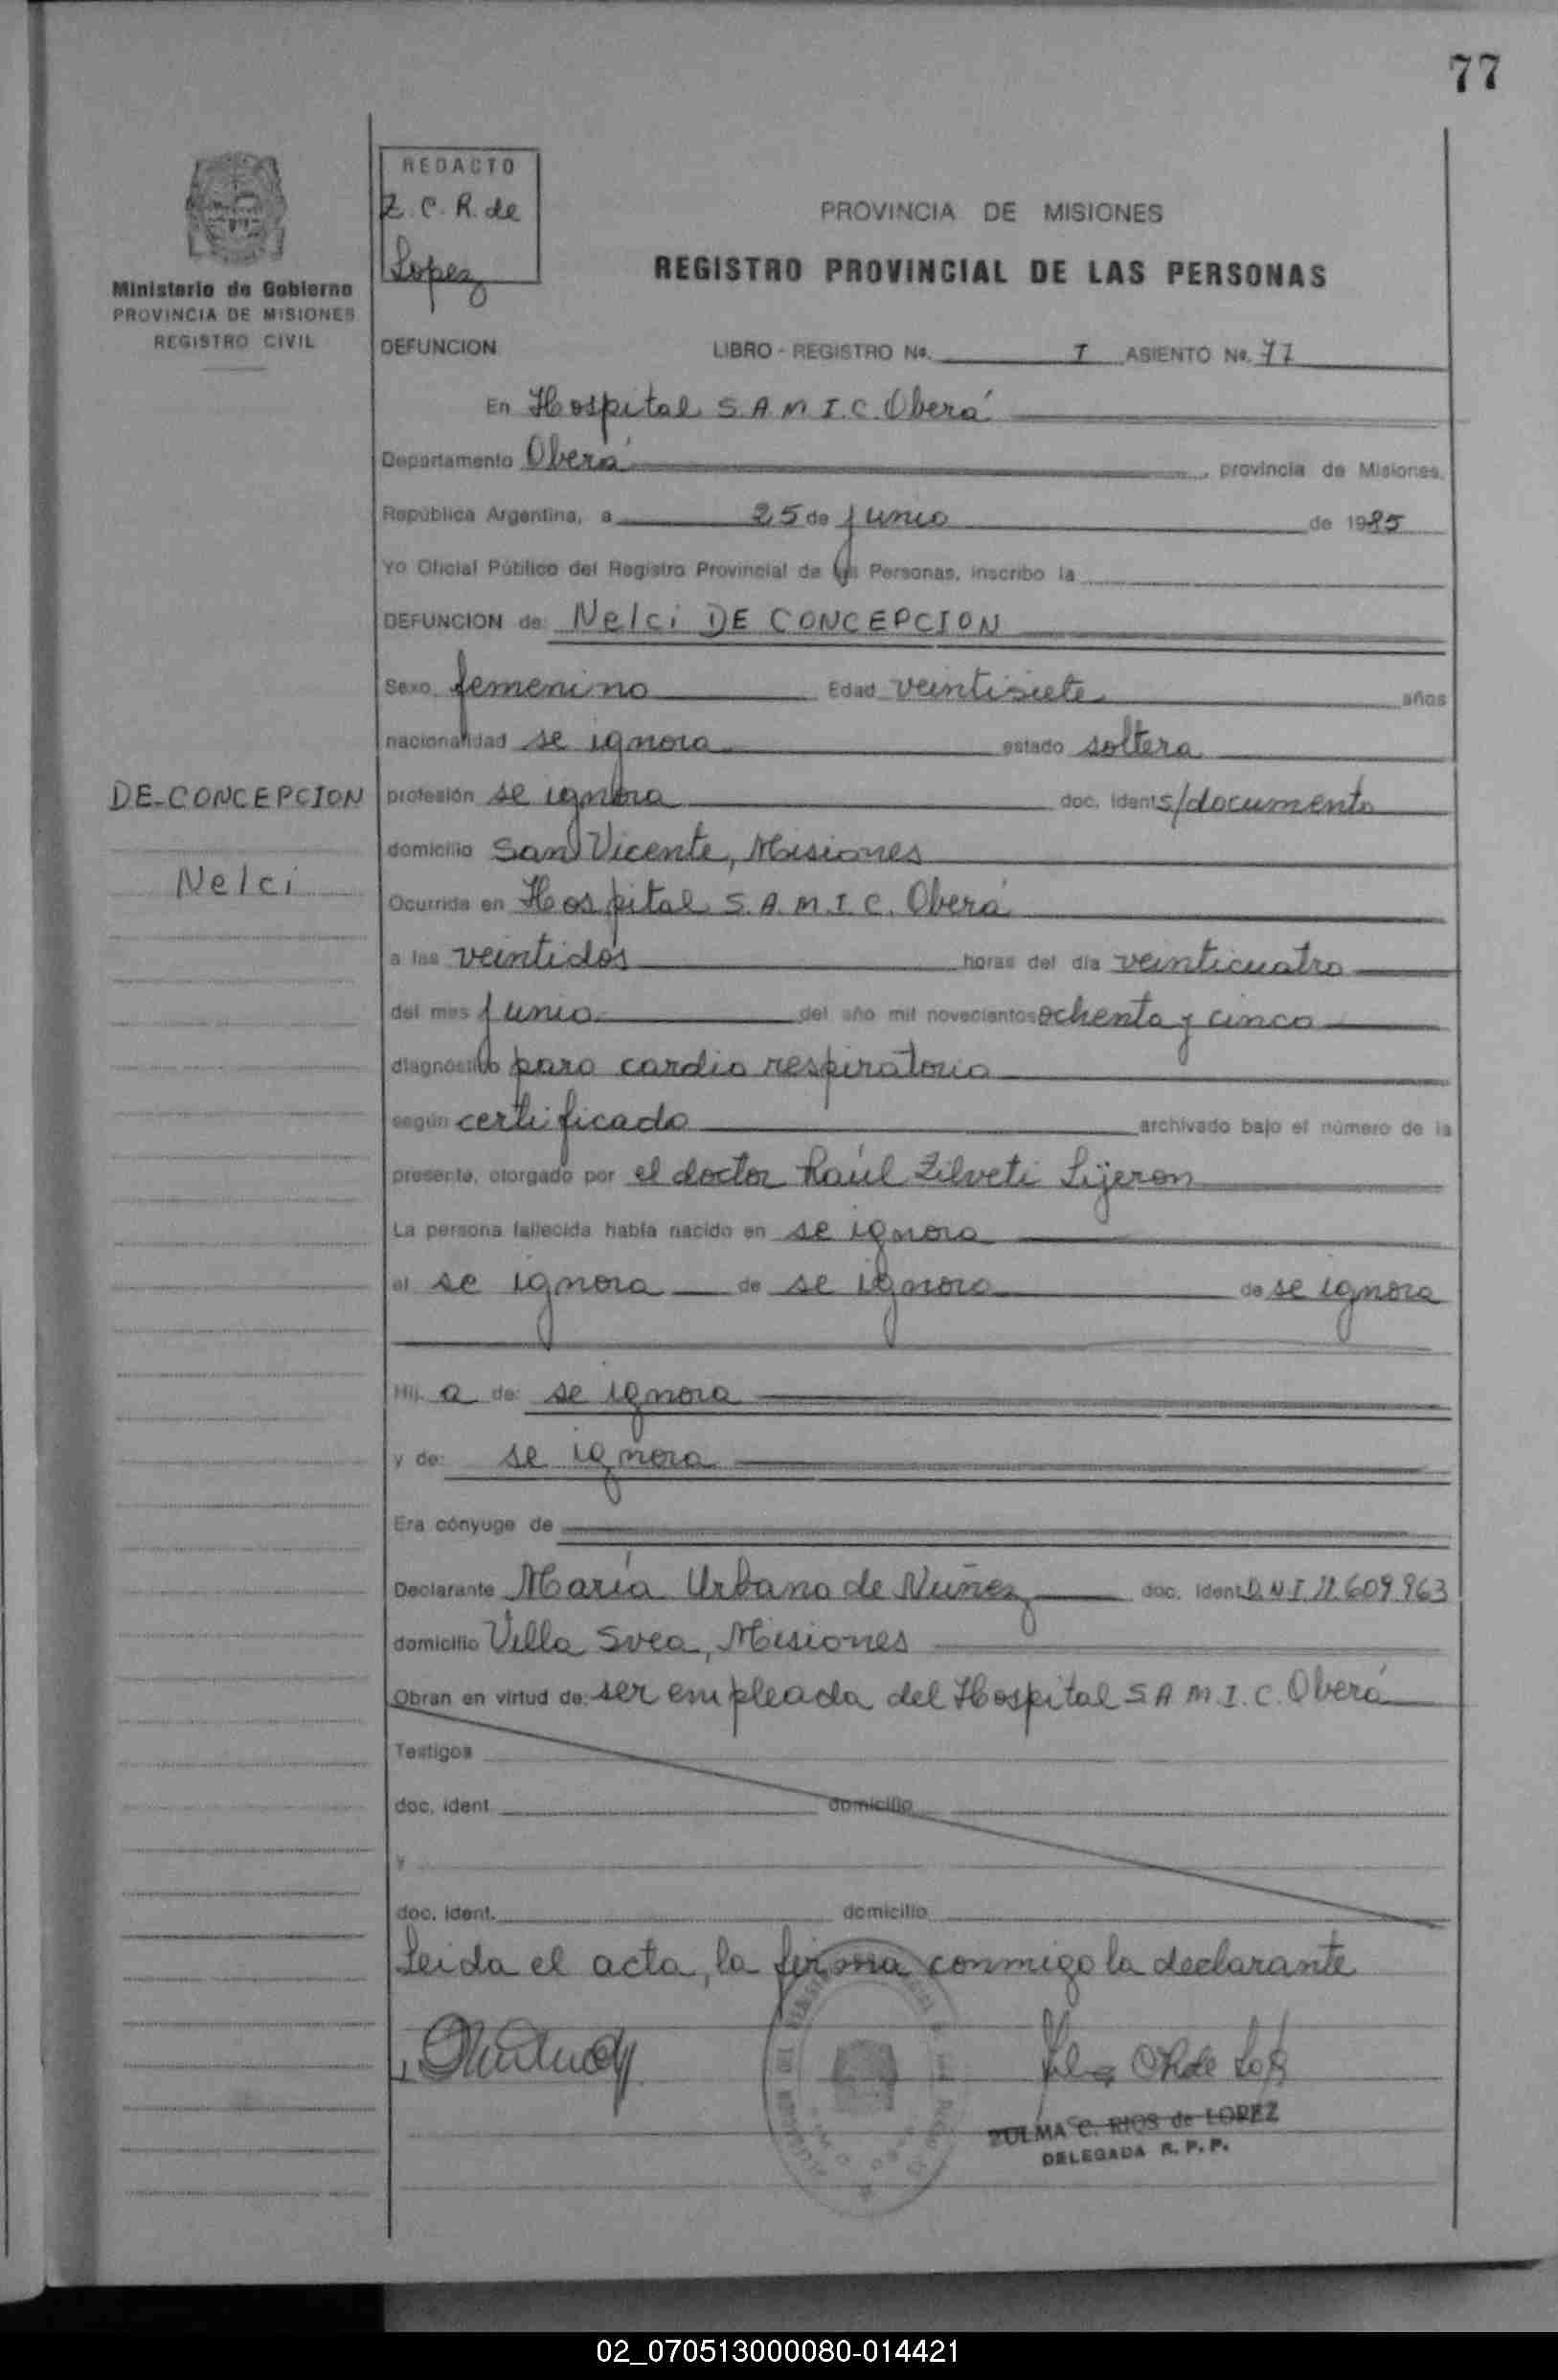 77
REDACTO
Z. C. R. de
Lopez
Ministerio de Gobierno
PROVINCIA DE MISIONES
REGISTRO CIVIL
PROVINCIA DE MISIONES
REGISTRO PROVINCIAL DE LAS PERSONAS
DEFUNCION LIBRO - REGISTRO No. I ASIENTO No. 77
En Hospital S.A.M.I.C. Oberá
Departamento Oberá, provincia de Misiones,
República Argentina, a 25 de Junio de 1985
Yo Oficial Público del Registro Provincial de las Personas, inscribo la
DEFUNCION de: Nelci DE CONCEPCION
Sexo femenino Edad veintisiete años
nacionalidad se ignora estado soltera
DE-CONCEPCION
Nelci
profesión se ignora doc. ident. s/documento
domicilio San Vicente, Misiones
Ocurrida en Hospital S.A.M.I.C. Oberá
a las veintidós horas del día veinticuatro
del mes Junio del año mil novecientos ochenta y cinco
diagnóstico paro cardio respiratorio
según certificado archivado bajo el número de la
presente, otorgado por el doctor Raúl Zilveti Lijeron
La persona fallecida había nacido en se ignora
el se ignora de se ignora de se ignora
Hij a de: se ignora
y de: se ignora
Era cónyuge de
Declarante María Urbana de Nuñez doc. ident. D.N.I. 11.609.963
domicilio Villa Svea, Misiones
Obran en virtud de: ser empleada del Hospital S.A.M.I.C. Oberá
Testigos
doc. ident. domicilio
y
doc. ident. domicilio
Leida el acta, la firma conmigo la declarante
ZULMA C. RIOS de LOPEZ
DELEGADA R. P. P.
02_070513000080-014421